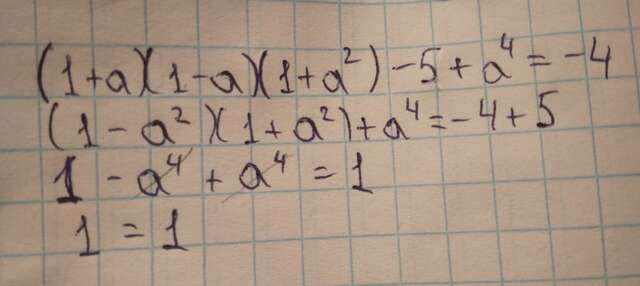 (1+a)(1-a)(1+a²)-5+a⁴=-4
(1-a²)(1+a²)+a⁴=-4+5
1-a⁴+a⁴=1
1=1